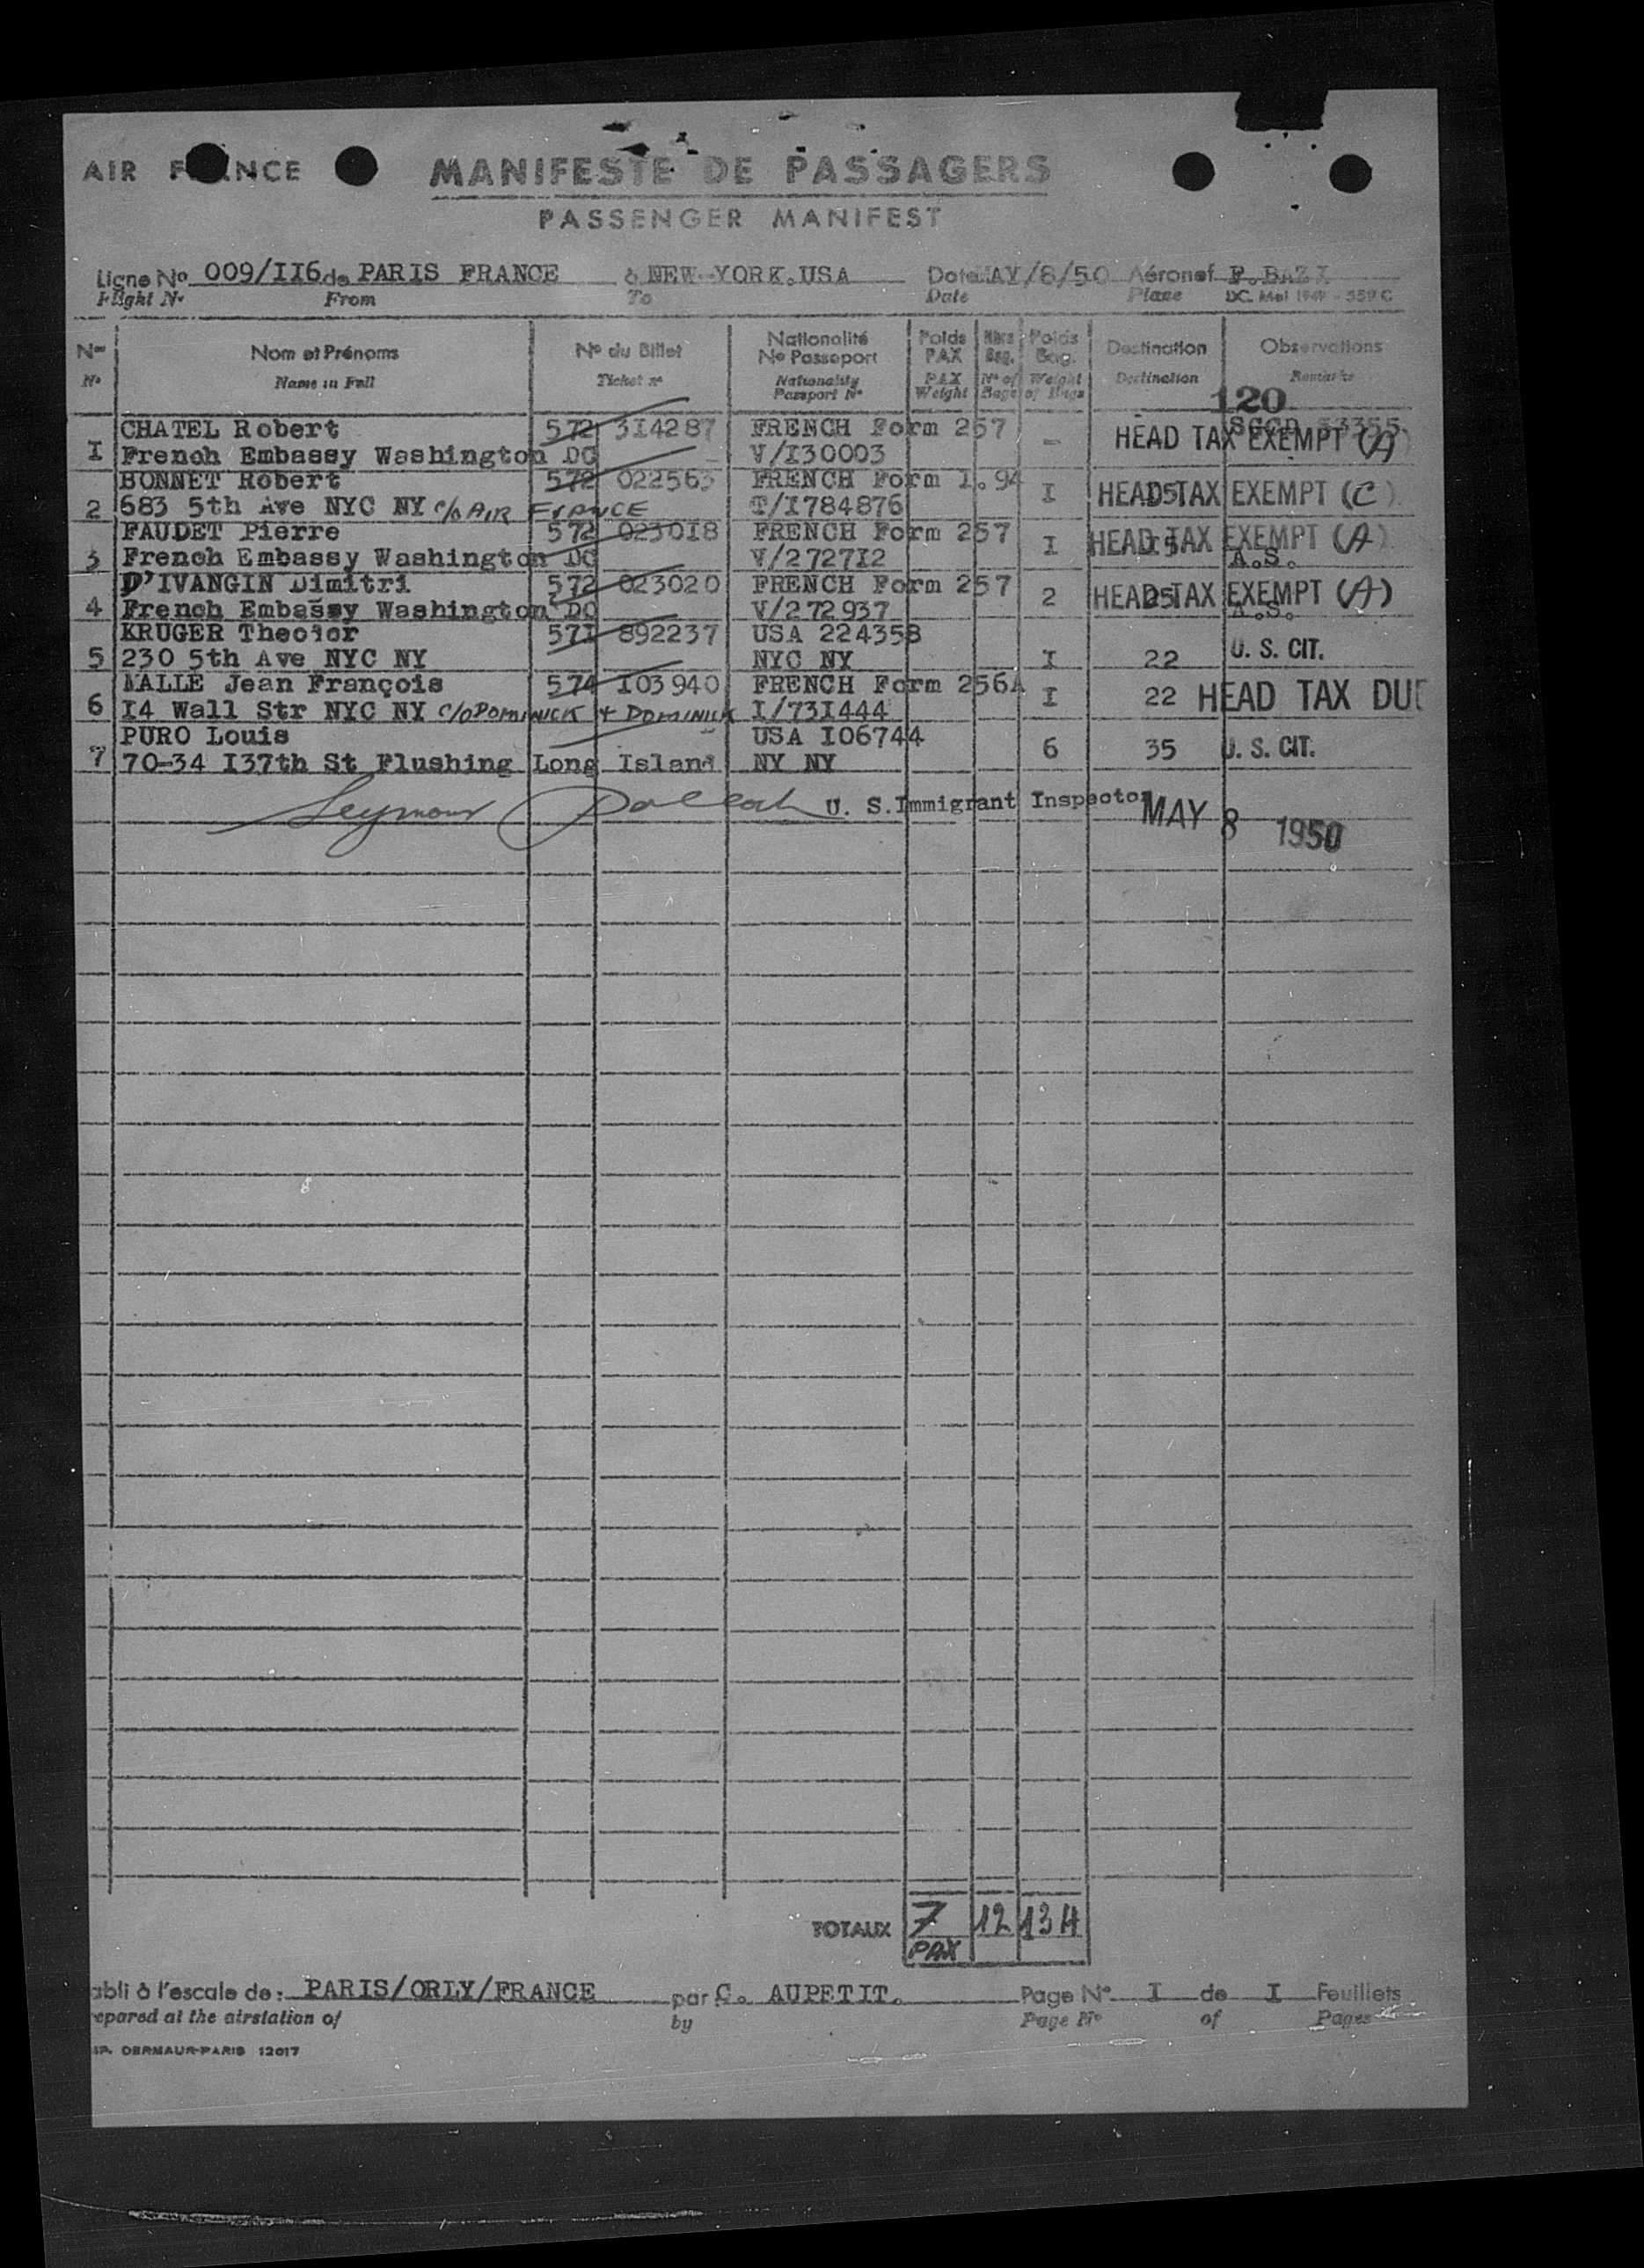 AIR FRANCE
MANIFESTE DE PASSAGERS
PASSENGER MANIFEST
Ligne No 009/II6 de PARIS FRANCE à NEW-YORK.USA Date MAY/8/50 Aéronef F.BAZI
Flight No From To Date Plane DC. Mai 1949 - 559 C
Nos Nom et Prénoms No du Billet Nationalité No Passeport Poids PAX Nbre Bag. Poids Bag. Destination Observations
No Name in Full Ticket no Nationality Passport No PAX Weight No of Bags Weight of Bags Destination Remarks
120
CHATEL Robert 572 314287 FRENCH Form 257
I French Embassy Washington DC V/I30003 - HEAD TAX EXEMPT (A)
BONNET Robert 572 022563 FRENCH Form 1.94
2 683 5th Ave NYC NY c/o AIR FRANCE T/I784876 I HEAD TAX EXEMPT (C)
FAUDET Pierre 572 023018 FRENCH Form 257
3 French Embassy Washington DC V/2727I2 I 15 HEAD TAX EXEMPT (A) A.S.
D'IVANGIN Dimitri 572 023020 FRENCH Form 257
4 French Embassy Washington DC V/272937 2 25 HEAD TAX EXEMPT (A) A.S.
KRUGER Theodor 57I 892237 USA 224358
5 230 5th Ave NYC NY NYC NY I 22 U. S. CIT.
MALLE Jean François 574 I03940 FRENCH Form 256A
6 I4 Wall Str NYC NY c/o DOMINICK & DOMINICK I/73I444 I 22 HEAD TAX DUE
PURO Louis USA I06744
7 70-34 I37th St Flushing Long Island NY NY 6 35 U. S. CIT.
Seymour Pollack U. S. Immigrant Inspector MAY 8 1950
TOTAUX 7 12 134
PAX
abli à l'escale de: PARIS/ORLY/FRANCE par C. AUPETIT. Page No I de I Feuillets
epared at the airstation of by Page No of Pages
IP. DERMAUR-PARIS 12017